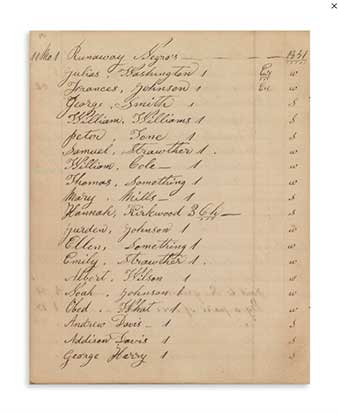 11 Mo 1 Runaway Negro's — 1851
Julias, Washington 1 w
Frances, Johnson 1 w
George, Smith 1 s
William, Williams 1 s
peter, Tone 1 s
Samuel, Strawther 1. w
William, Cole — 1 w
Thomas, Something 1 w
Mary, Mills — 1 s
Hannah, Kirkwood 3 — s
Jurden, Johnson 1 w
Ellen, Something 1 w
Emily, Strawther 1. w
Albert, Wilson 1 w
Noah, Johnson 1 w
Obed, What 1 w
Andrew Davis — 1 s
Addison Davis 1 s
George Harry 1 s